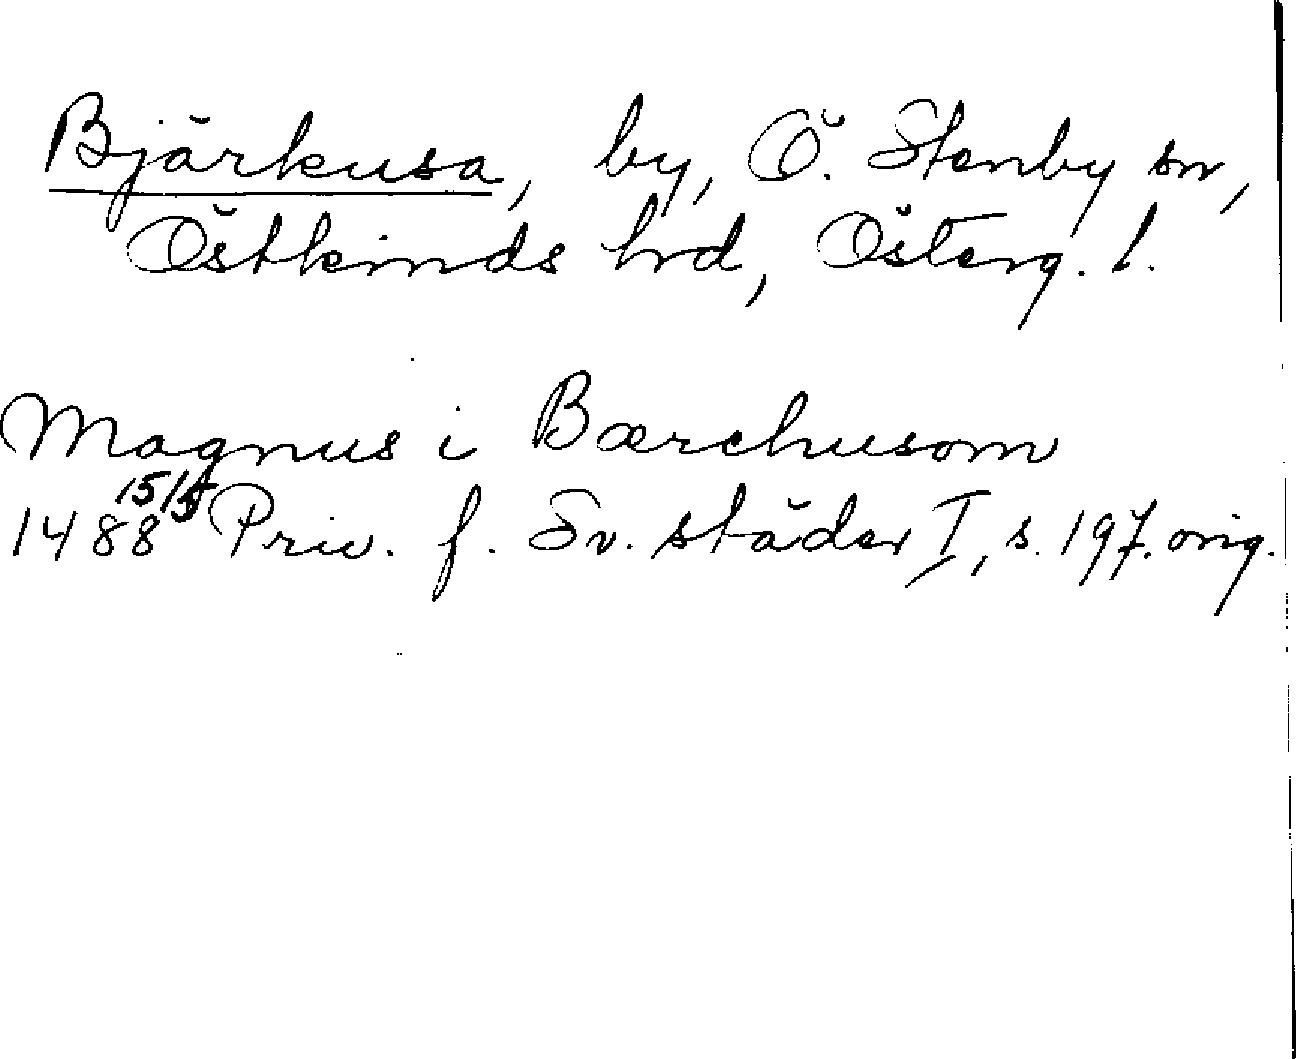 Bjärkusa, by, Ö. Stenby sn,
Östkinds hrd, Österg. l.
Magnus i Bærchusom
1488 15/5 Priv. f. Sv. städer I, s. 197. orig.